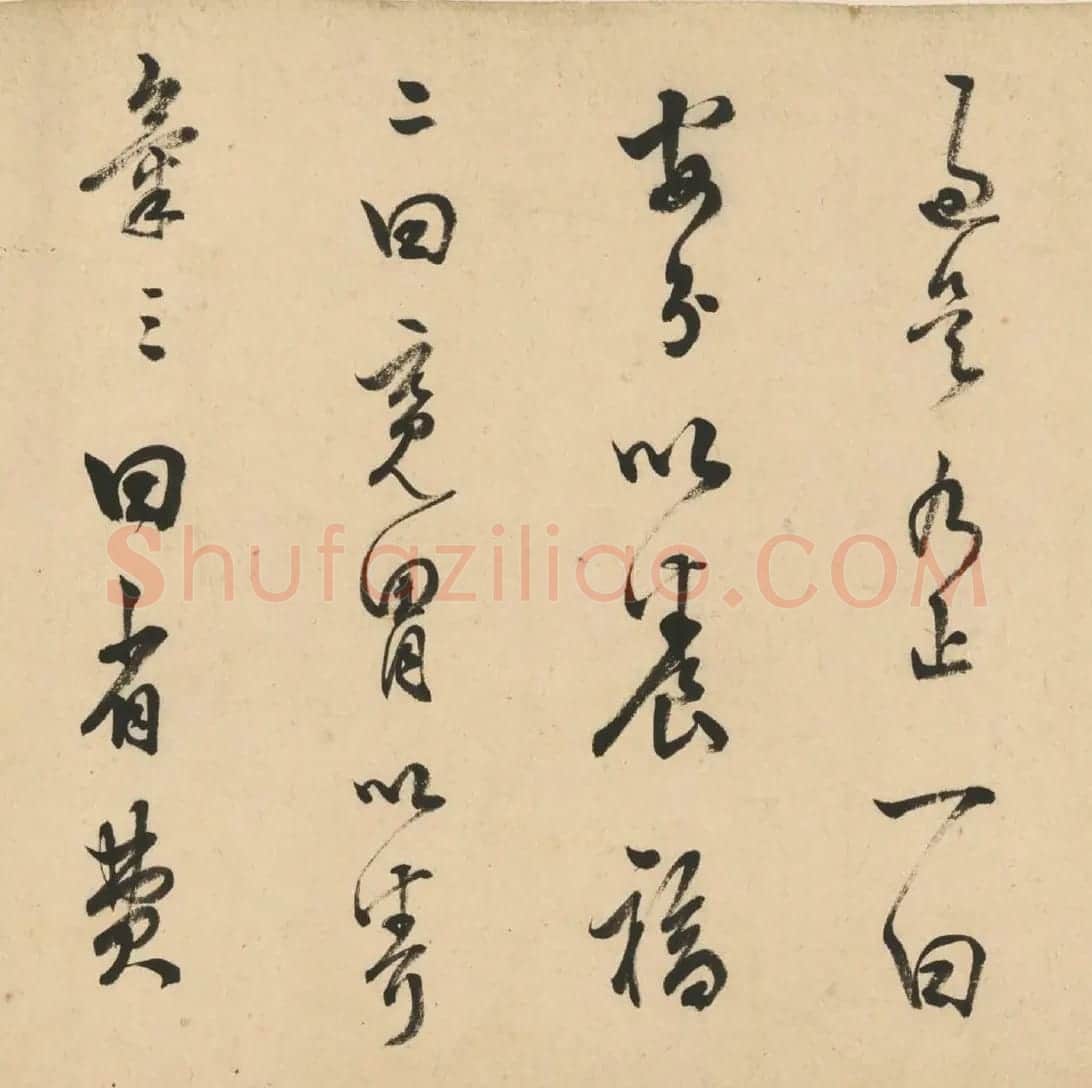 過是乃止一曰
安分以養福
二曰寬胃以養
氣三曰省費
Shufaziliao.COM